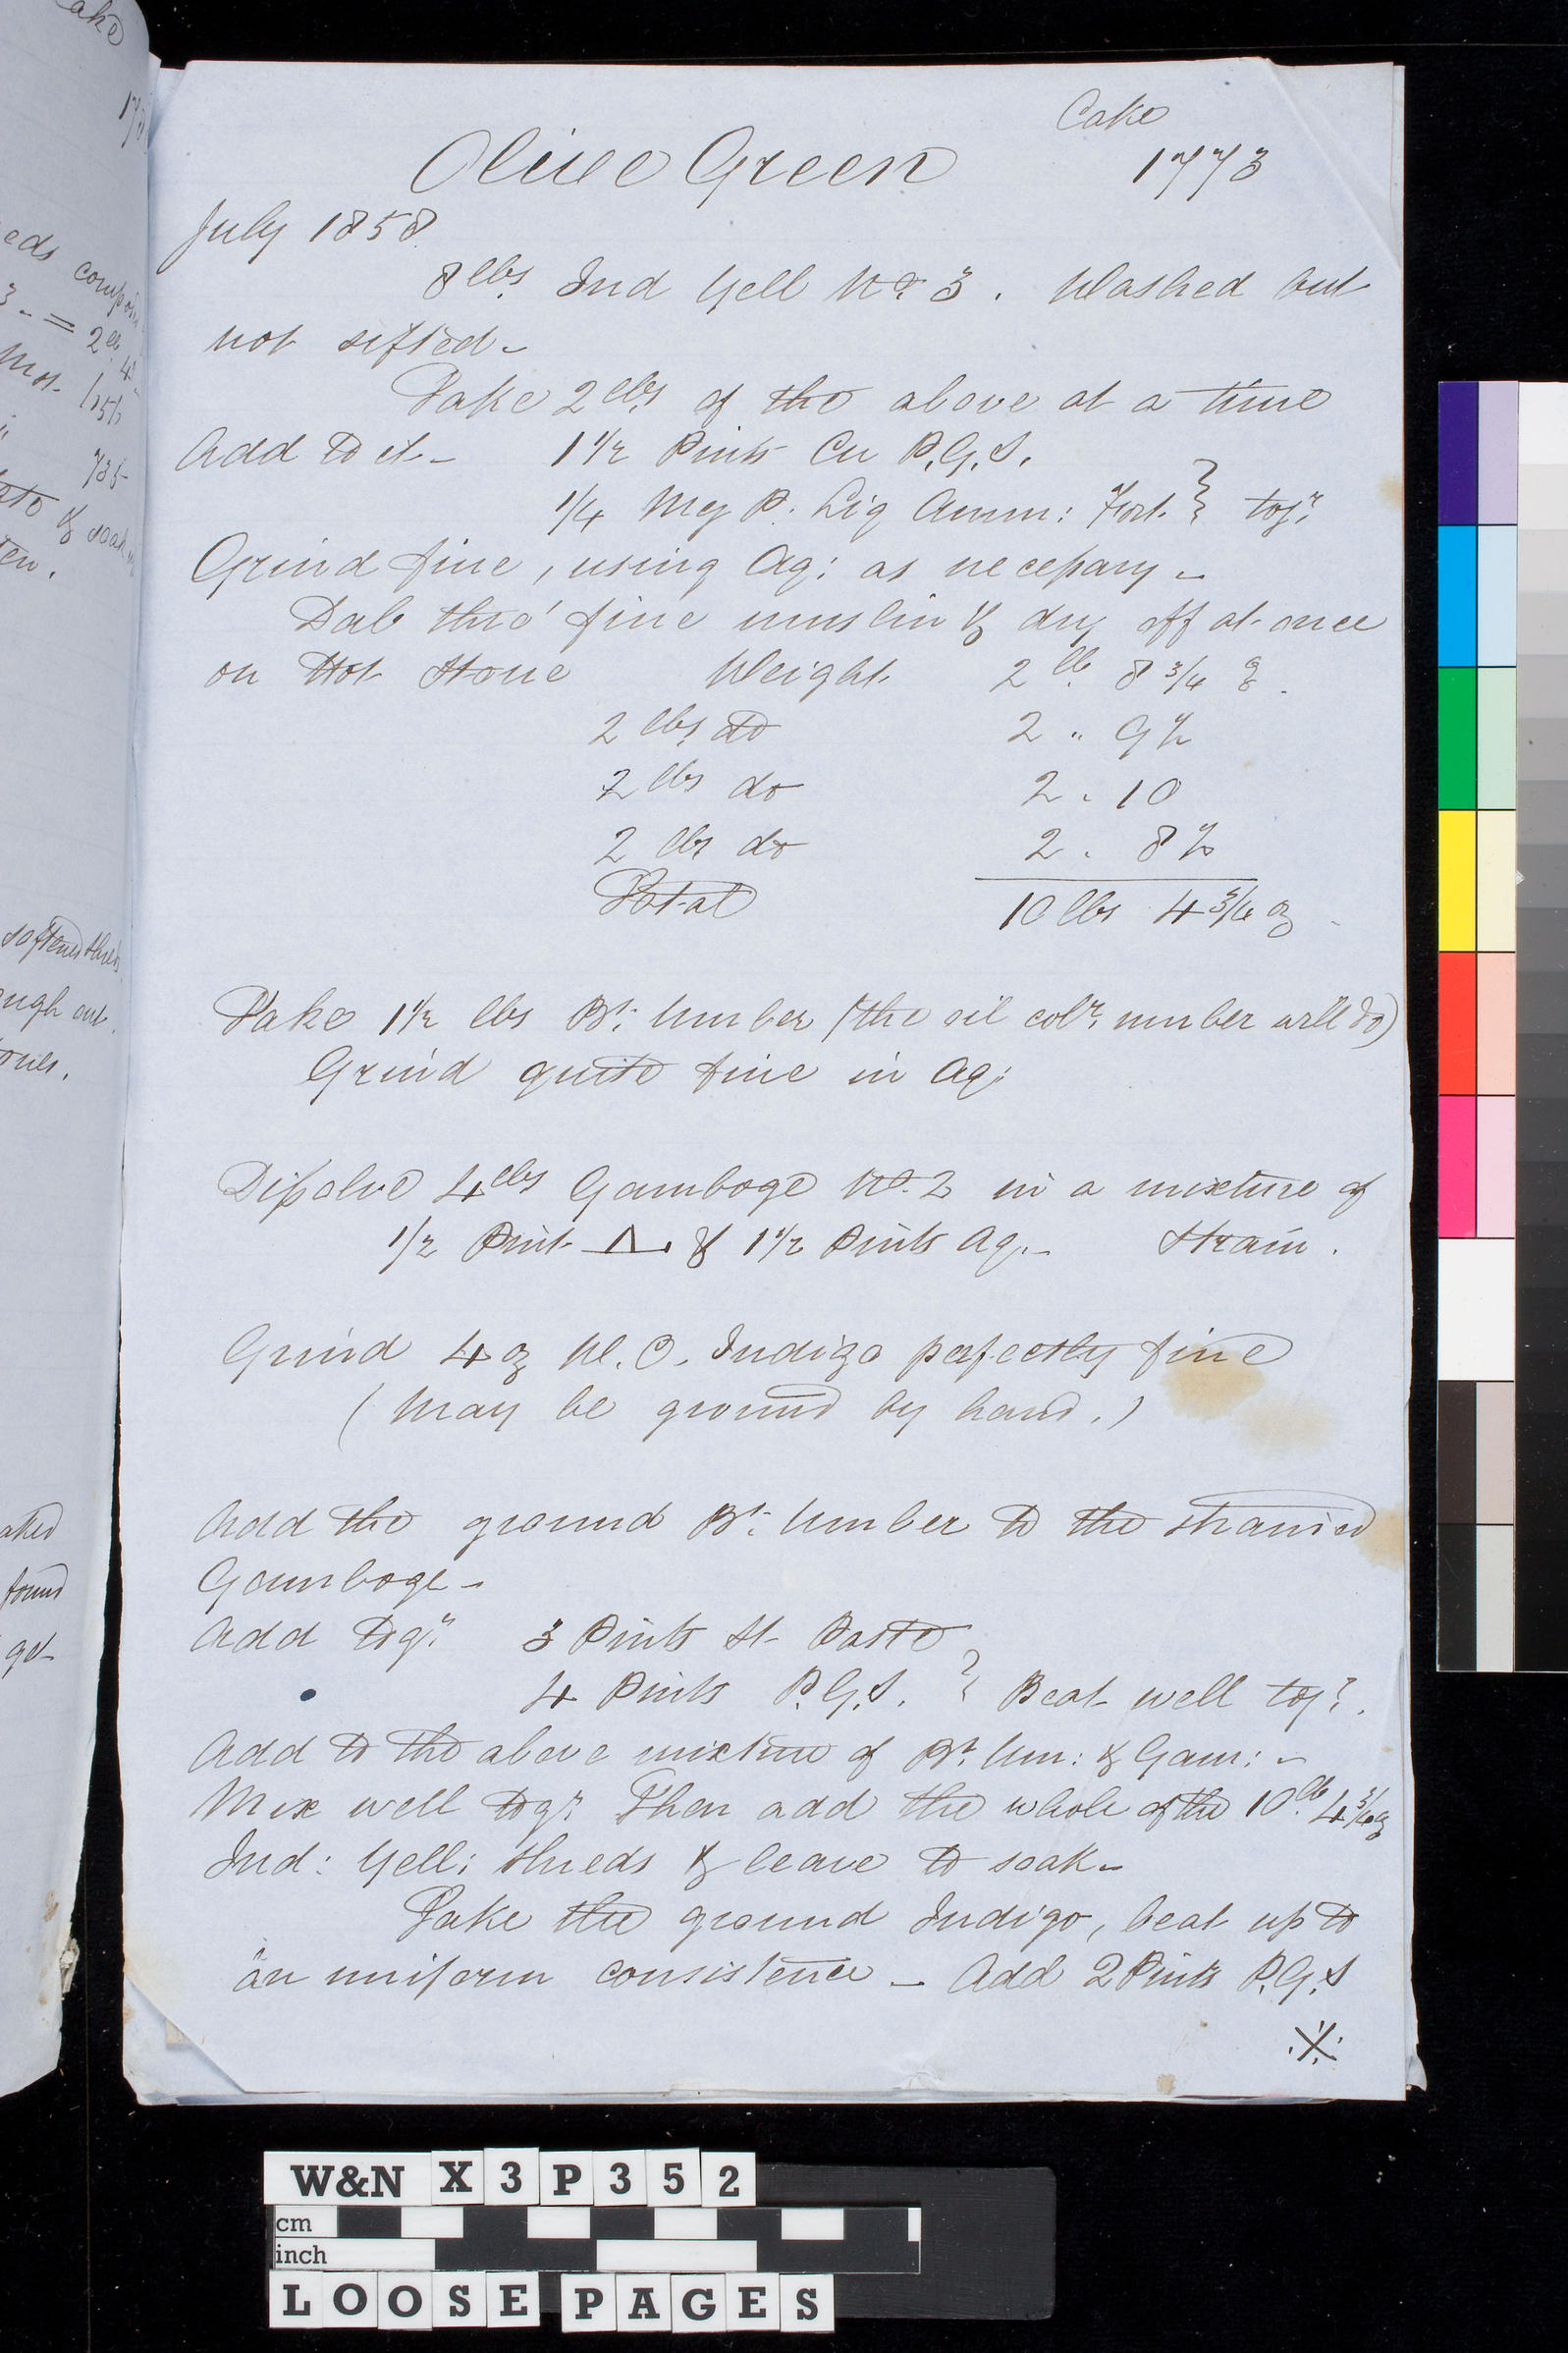 ake
eds compo
3 - = 2 lb 4
Mos. 1,5½
735
ato & soak
en.
softened shreds
ough out.
ones.
ated
found
get
Cake
Olive Green 1773
July 1858.
8 lbs. Ind Yell No. 3. Washed but
not sifted -
Take 2 lbs of the above at a time
Add to it - 1 1/2 Pints Cu P.G.S.
1/4 Mg P. Liq Amm: Fort. } togr.
Grind fine, using Aq: as necessary -
Dab thro' fine muslin & dry off at once
on Hot Stone Weight 2 lb. 8 3/4 oz.
2 lbs do 2 " 9 1/2
2 lbs do 2 . 10
2 lbs do 2 . 8 1/2
Total 10 lbs 4 3/4 oz
Take 1 1/2 lbs Bt: Umber (the oil colr. umber will do)
Grind quite fine in Aq:
Dissolve 4 lbs Gamboge No. 2 in a mixture of
1/2 Pint & 1 1/2 Pints Aq. - Strain.
Grind 4 oz W.C. Indigo perfectly fine
(May be ground by hand.)
Add the ground Bt: Umber to the strained
Gamboge -
Add togr. 3 Pints St Paste
4 Pints P.G.S. } Beat well togr.
Add to the above mixture of Bt. Um: & Gam: -
Mix well togr. Then add the whole of the 10 lb. 4 3/4 oz
Ind: Yell: shreds & leave to soak -
Take the ground Indigo, beat up to
an uniform consistence - Add 2 Pints P.G.S
※
W&N X3P352
cm
inch
LOOSE PAGES